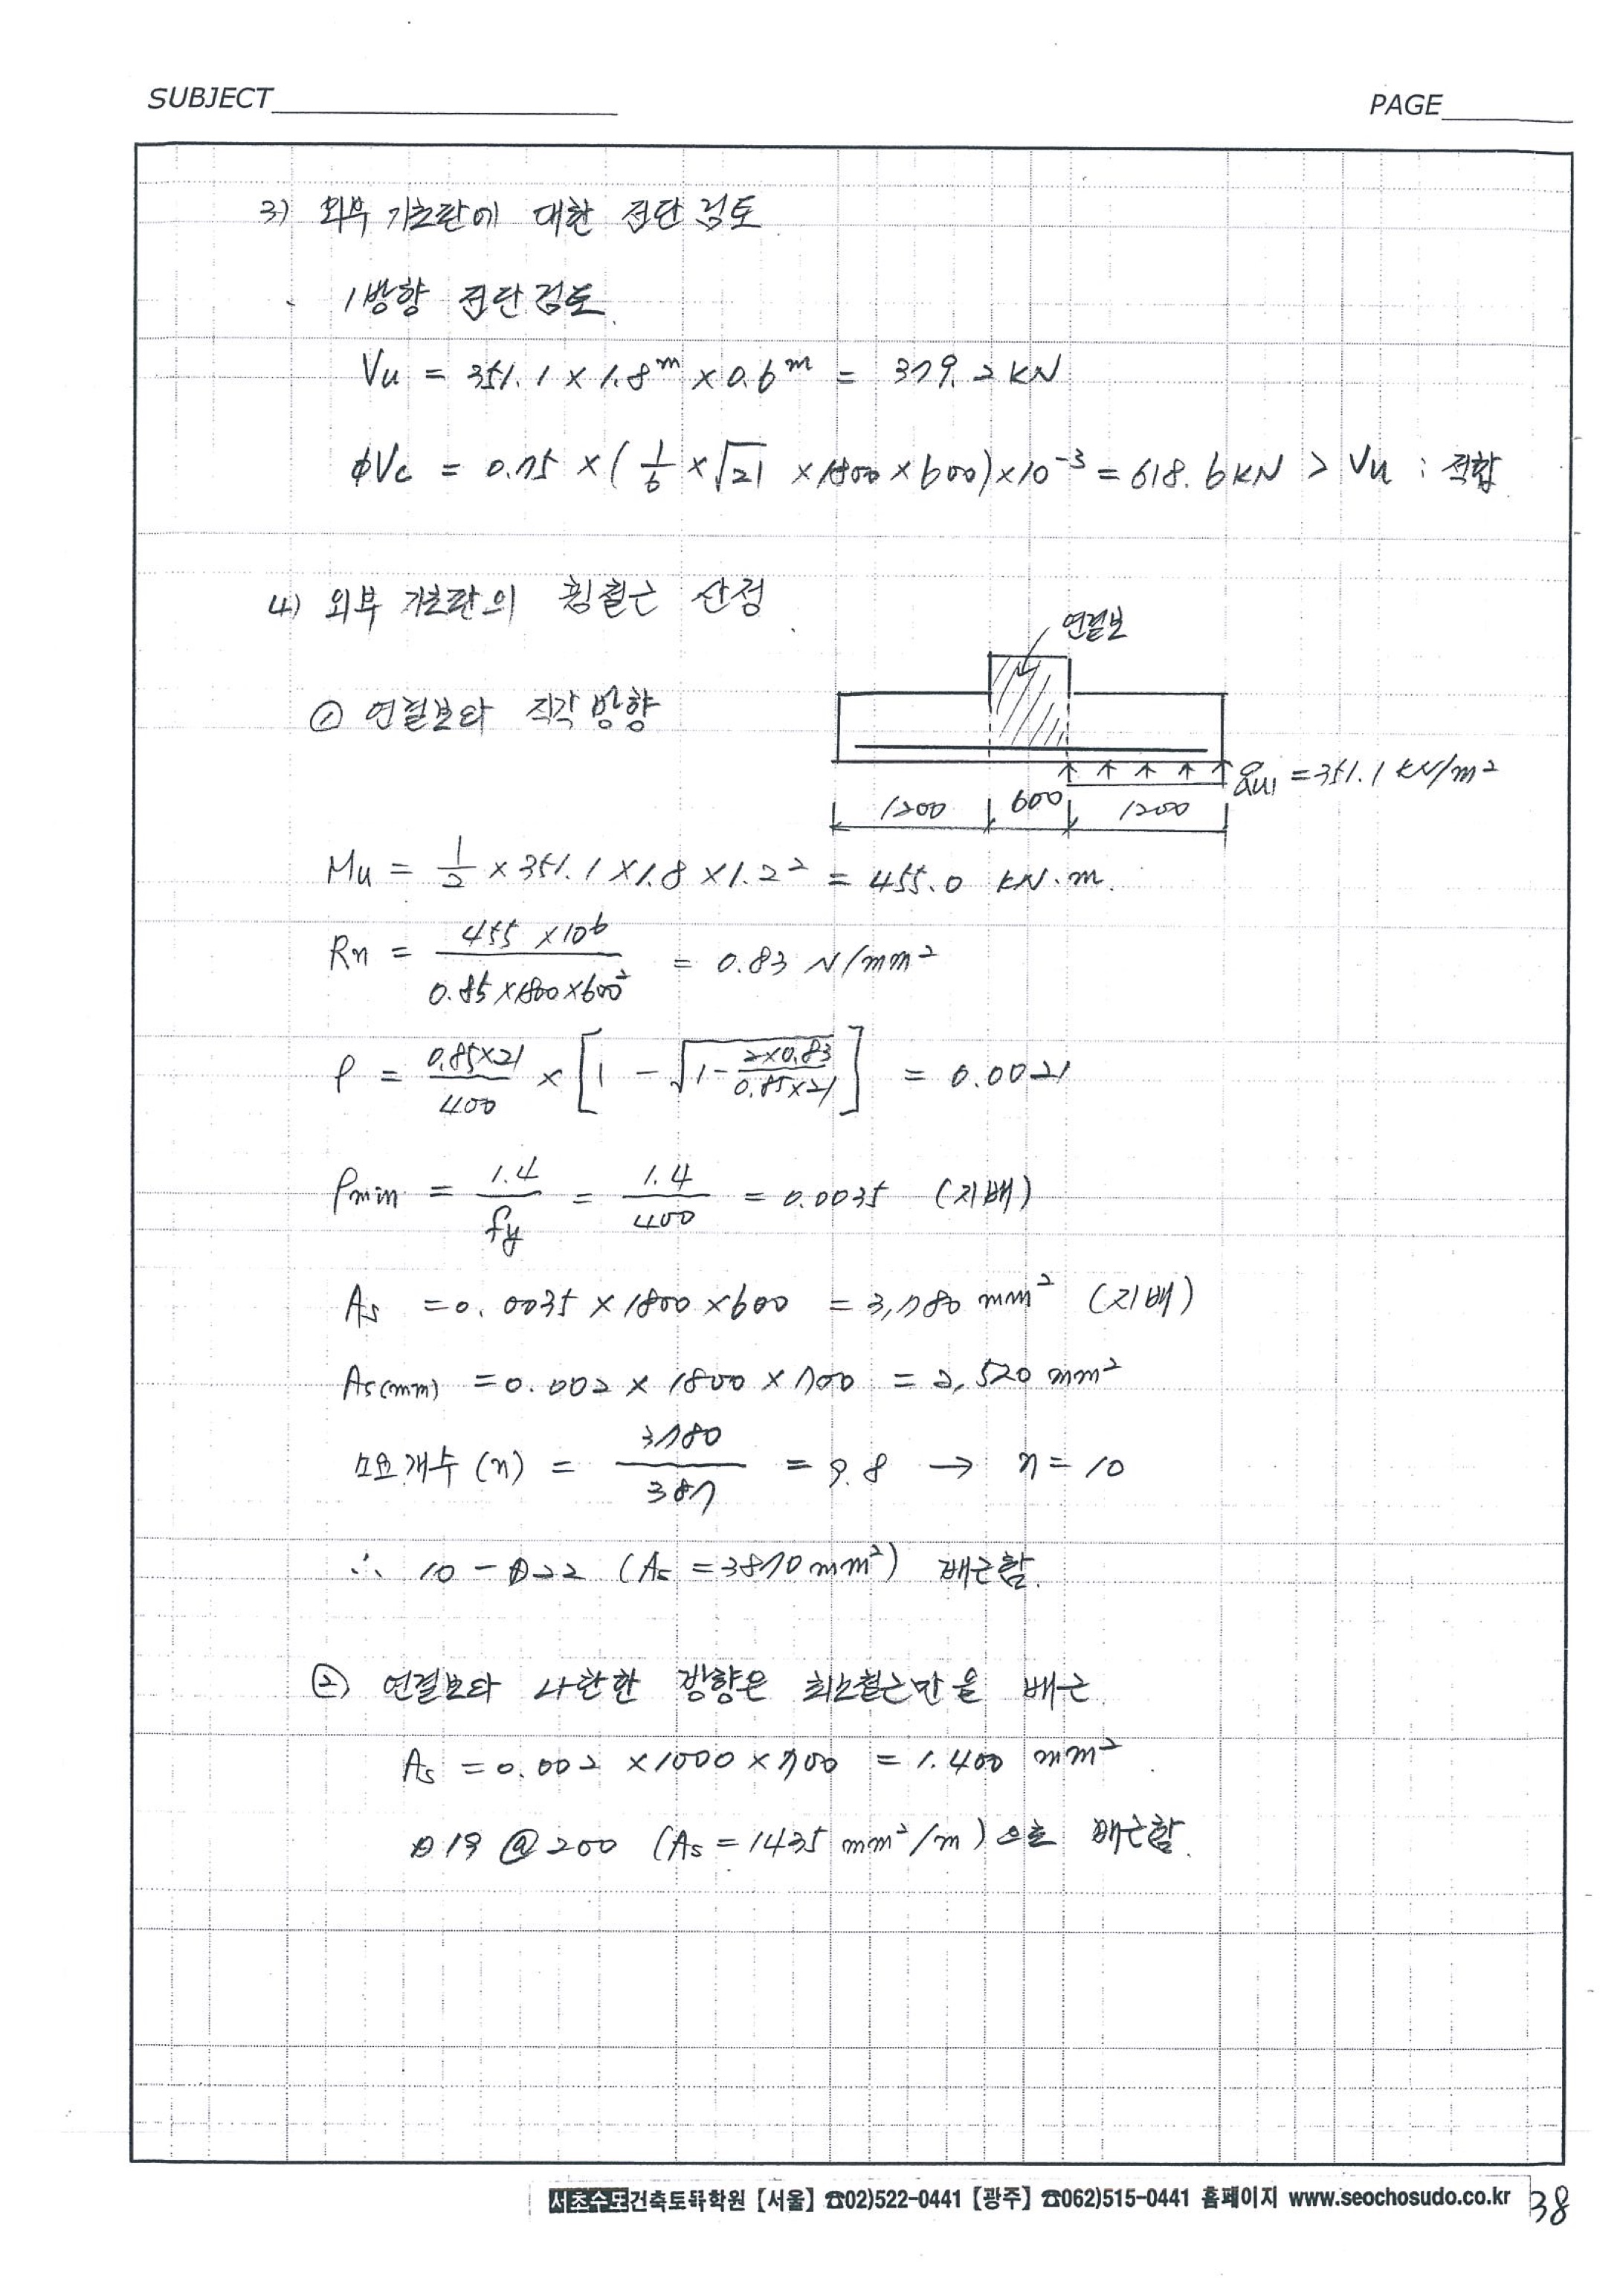 SUBJECT
PAGE
3) 외부 기초판에 대한 전단검토
1방향 전단검토
Vu = 351.1 × 1.8ᵐ × 0.6ᵐ = 379.2 kN
φVc = 0.75 × (1/6 × √21 × 1800 × 600) × 10⁻³ = 618.6 kN > Vu : 적합
4) 외부 기초판의 휨철근 산정
연결보
① 연결보와 직각방향
qu1 = 351.1 kN/m²
1200 600 1200
Mu = 1/2 × 351.1 × 1.8 × 1.2² = 455.0 kN·m
Rn = 455 × 10⁶ / 0.85 × 1800 × 600² = 0.83 N/mm²
ρ = 0.85×21 / 400 × [1 - √(1 - 2×0.83 / 0.85×21)] = 0.0021
ρmin = 1.4 / fy = 1.4 / 400 = 0.0035 (지배)
As = 0.0035 × 1800 × 600 = 3,780 mm² (지배)
As(min) = 0.002 × 1800 × 700 = 2,520 mm²
소요개수 (n) = 3780 / 387 = 9.8 → n = 10
∴ 10 - D22 (As = 3870 mm²) 배근함.
② 연결보와 나란한 방향은 최소철근만을 배근.
As = 0.002 × 1000 × 700 = 1.400 mm²
D19 @200 (As = 1435 mm²/m)으로 배근함.
서초수도건축토목학원 【서울】 ☎02)522-0441 【광주】 ☎062)515-0441 홈페이지 www.seochosudo.co.kr
38